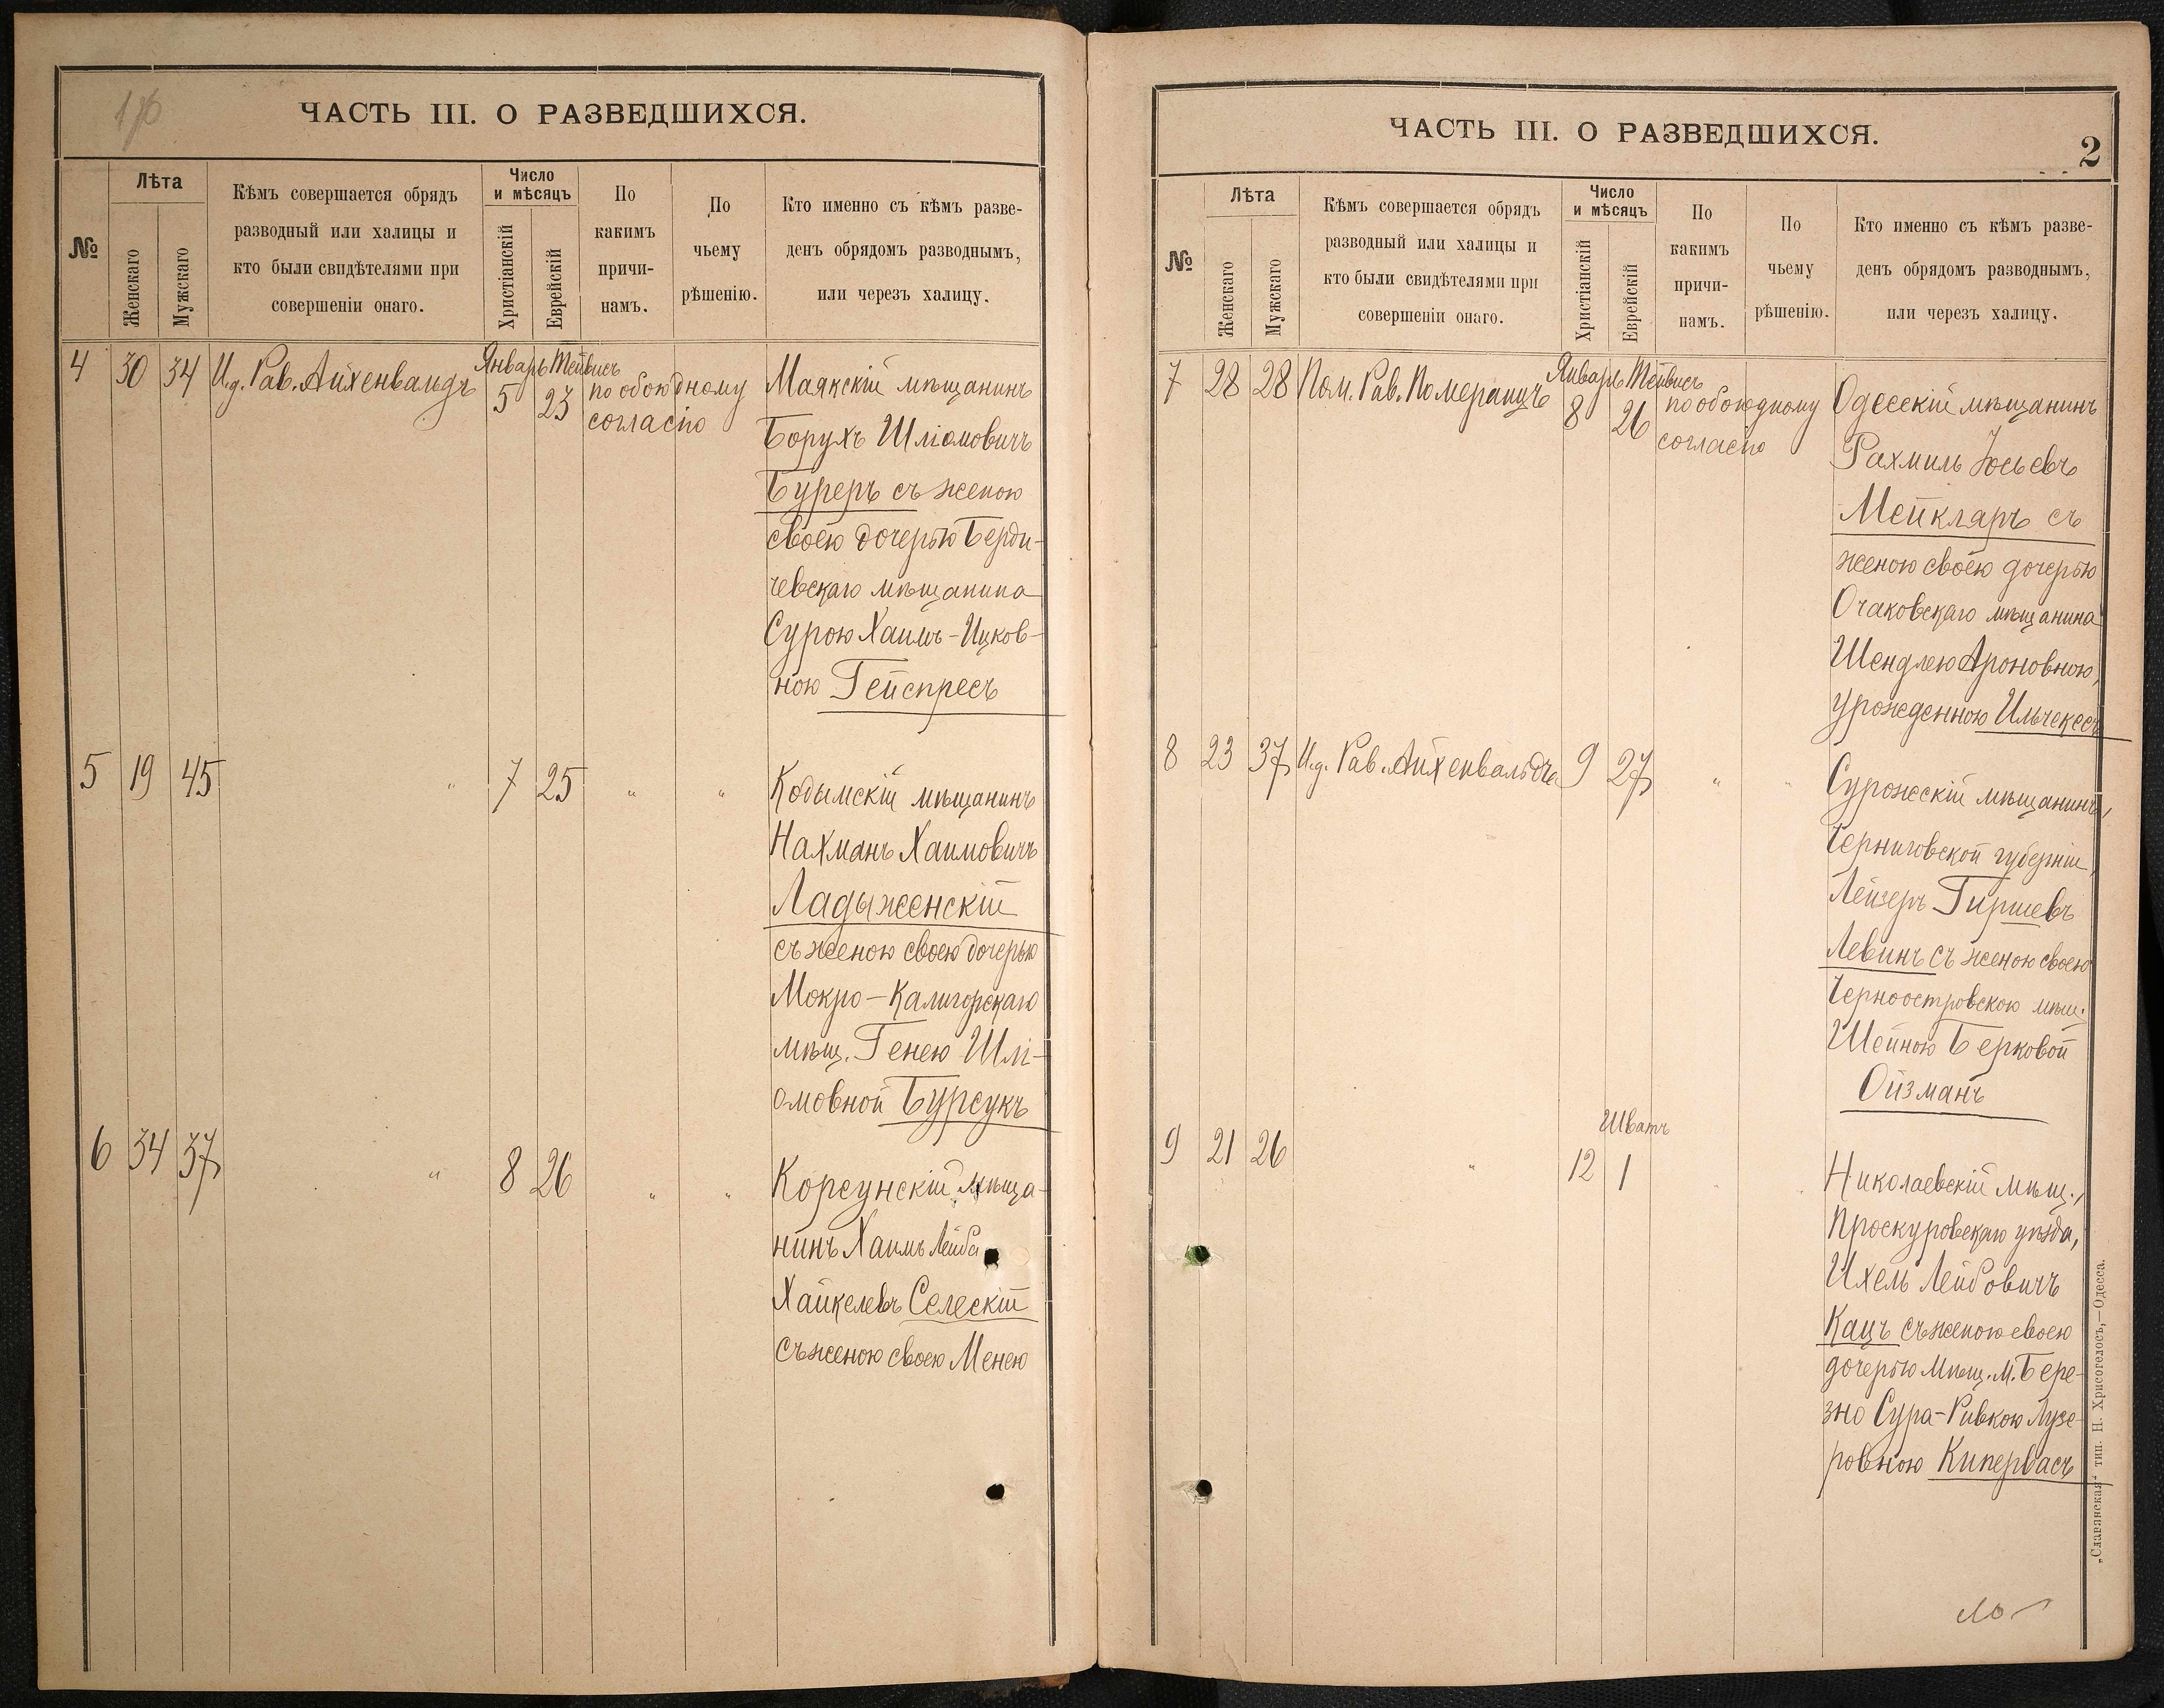 ЧАСТЬ III. О РАЗВЕДШИХСЯ.
№
Лѣта
Женскаго
Мужскаго
Кѣмъ совершается обрядъ
разводный или халицы и
кто были свидѣтелями при
совершеніи онаго.
Число
и мѣсяцъ
Христіанскій
Еврейскій
По
какимъ
причи-
намъ.
По
чьему
рѣшенію.
Кто именно съ кѣмъ разве-
денъ обрядомъ разводнымъ,
или черезъ халицу.
4 30 34 И.д. Рав. Айхенвандъ
Январь Тейвисъ
5 23
по обоюдному
согласію
Маякскій мѣщанинъ
Борухъ Шліомовичъ
Буреръ съ женою
своею дочерью Берди-
чевскаго мѣщанина
Сурою Хаимъ-Ицков-
ною Гейспресъ
5 19 45 " 7 25 " "
Кодымскій мѣщанинъ
Нахманъ Хаимовичъ
Ладыженскій
съ женою своею дочерью
Мокро-Калигорскаго
мѣщ. Генею Шлі-
омовной Бурсукъ
6 34 37 " 8 26 " "
Корсунскій мѣща-
нинъ Хаимъ Лейба
Хайкелевъ Селескій
съ женою своею Менею
ЧАСТЬ III. О РАЗВЕДШИХСЯ.
2
№
Лѣта
Женскаго
Мужскаго
Кѣмъ совершается обрядъ
разводный или халицы и
кто были свидѣтелями при
совершеніи онаго.
Число
и мѣсяцъ
Христіанскій
Еврейскій
По
какимъ
причи-
намъ.
По
чьему
рѣшенію.
Кто именно съ кѣмъ разве-
денъ обрядомъ разводнымъ,
или черезъ халицу.
7 28 28 Пом. Рав. Померанцъ
Январь Тейвисъ
8 26
по обоюдному
согласію
Одесскій мѣщанинъ
Рахмиль Іосьевъ
Мейкляръ съ
женою своею дочерью
Очаковскаго мѣщанина
Шендлею Ароновною,
урожденною Ильчекесъ
8 23 37 И.д. Рав. Айхенвальдъ 9 27 " "
Сурожскій мѣщанинъ,
Черниговской губерніи,
Лейзеръ Гиршевъ
Левинъ съ женою своею
Черноостровскою мѣщ.
Шейною Берковой
Ойзманъ
Шватъ
9 21 26 " 12 1 " "
Николаевскій мѣщ.,
Проскуровскаго уѣзда,
Ихель Лейбовичъ
Кацъ съ женою своею
дочерью мѣщ. м. Бере-
зно Сура-Ривкою Лузе-
ровною Кипервасъ
„Славянская“ тип. Н. Хрисогелосъ,—Одесса.